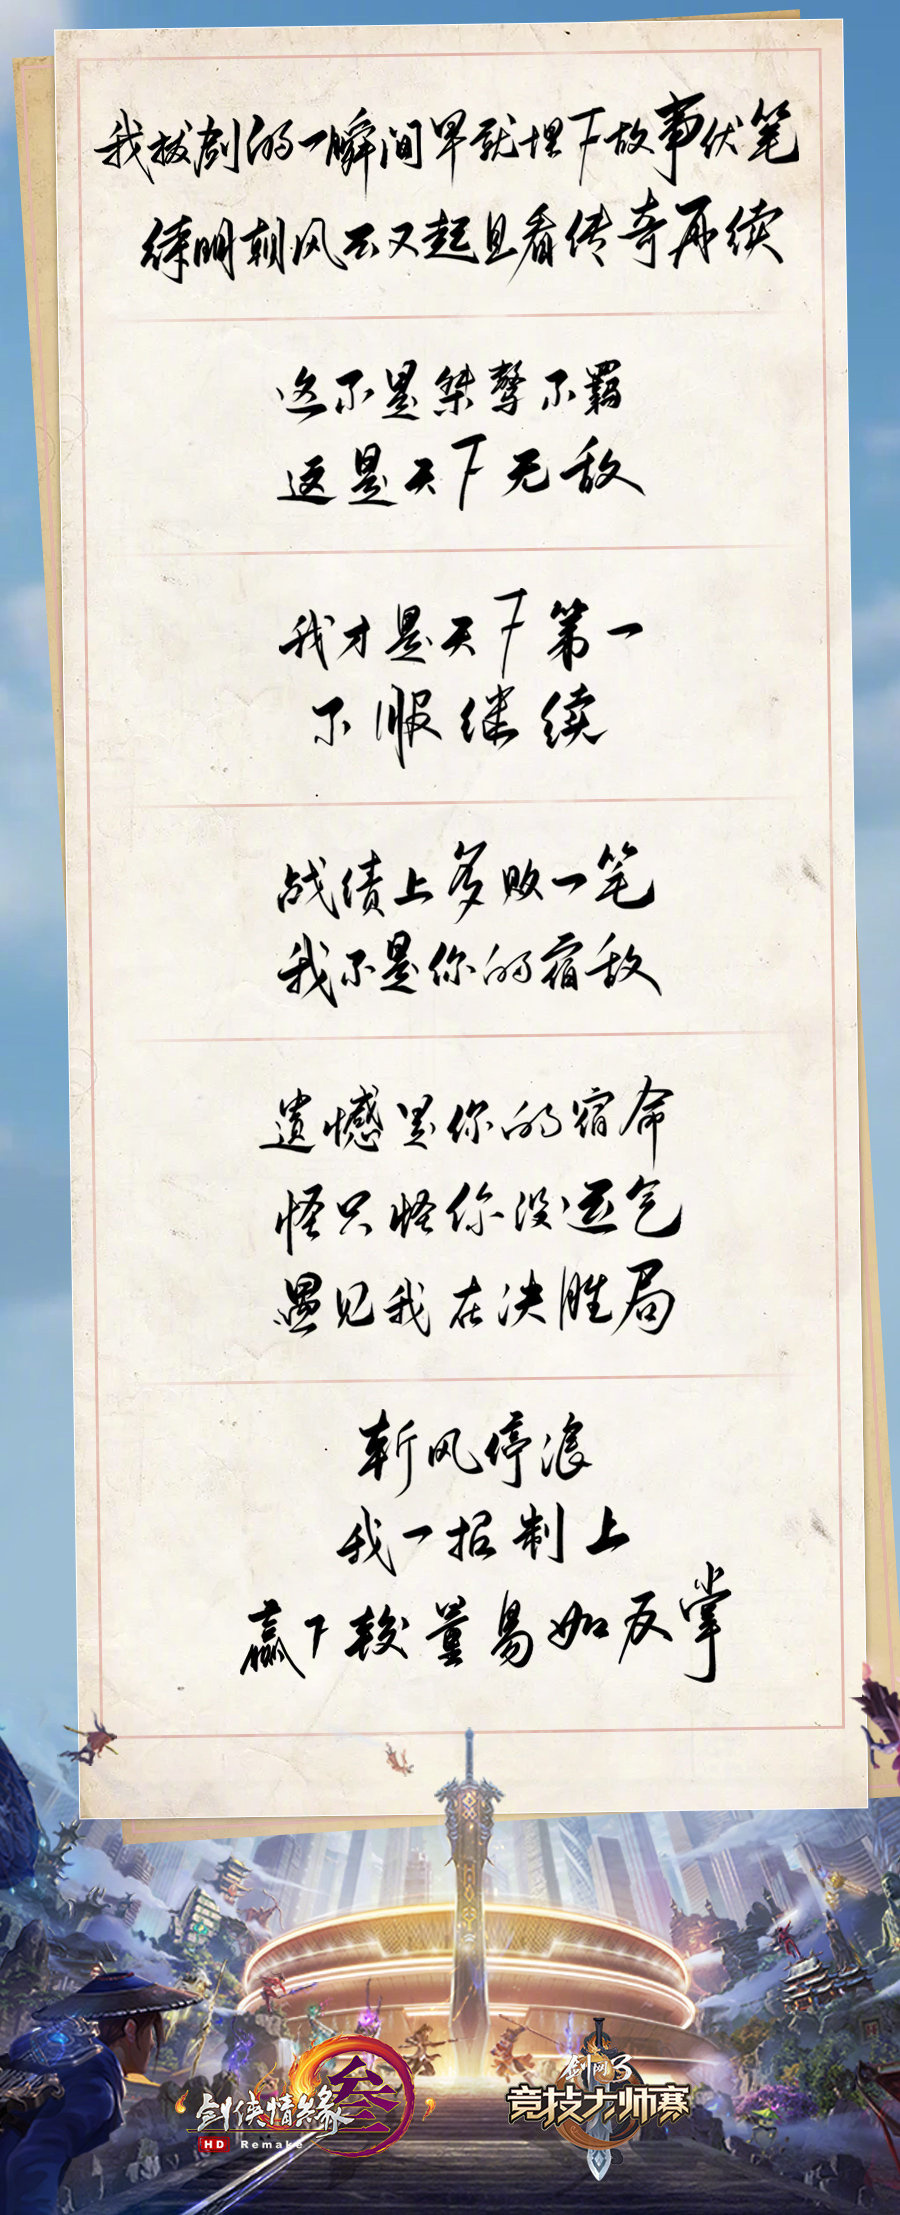 我拔剑的一瞬间早就埋下故事伏笔
待明朝风云又起且看传奇再续
这不是桀骜不羁
这是天下无敌
我才是天下第一
不服继续
战绩上多败一笔
我不是你的宿敌
遗憾是你的宿命
怪只怪你没运气
遇见我在决胜局
斩风停浪
我一招制上
赢下较量易如反掌
剑侠情缘叁
HD Remake
剑网3
竞技大师赛